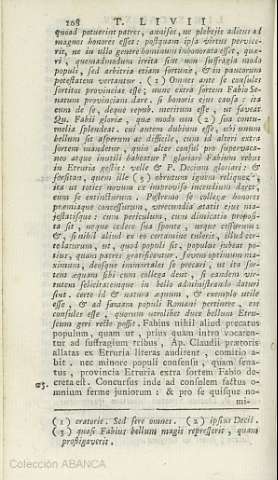 108 T. LIVII
quod potuerint patres, annisos, ne plebejis aditus ad
magnos honores esset: postquam ipsa virtus pervicerit,
ne in ullo genere hominum inhonorata esset, quæri,
quemadmodum irrita sint non suffragia modo
populi, sed arbitria etiam fortunæ, & in paucorum
potestatem vertantur. (1) Omnes ante se consules
sortitos provincias esse; nunc extra sortem Fabio Senatum
provinciam dare. si honoris ejus causa: ita
eum de se, deque repub. meritum esse, ut faveat
Qu. Fabii gloriæ, quæ modo non (2) sua contumelia
splendeat. cui autem dubium esse, ubi unum
bellum sit asperum ac difficile, cum id alteri extra
sortem mandetur, quin alter consul pro supervacaneo
atque inutili habeatur? gloriari Fabium rebus
in Etruria gestis: velle & P. Decium gloriari: &
forsitan, quem ille (3) obrutum ignem reliquerit,
ita ut toties novum ex improviso incendium daret,
eum se extincturum. Postremo se collegæ honores
præmiaque concessurum, verecundia ætatis ejus majestatisque:
cum periculum, cum dimicatio proposita
sit, neque cedere sua sponte, neque cessurum:
&, si nihil aliud ex eo certamine tulerit, illud certe
laturum, ut, quod populi sit, populus jubeat potius,
quam patres gratificentur. Jovem optimum maximum,
deosque immortales se precari, ut ita sortem
æquam sibi cum collega dent, si eandem virtutem
felicitatemque in bello administrando daturi
sint. certe id & natura æquum, & exemplo utile
esse, & ad famam populi Romani pertinere, eos
consules esse, quorum utrolibet duce bellum Etruscum
geri recte possit. Fabius nihil aliud precatus
populum, quam ut, prius quam intro vocarentur
ad suffragium tribus, Ap. Claudii prætoris
allatas ex Etruria literas audirent, comitio abit.
nec minore populi consensu, quam senatus,
provincia Etruria extra sortem Fabio decreta
est. Concursus inde ad consulem factus omnium
ferme juniorum: & pro se quisque no-
mi-
(1) oratorie. Sed fere omnes. (2) ipsius Decii.
(3) quasi Fabius bellum magis represserit, quam
profligaverit.
Colección ABANCA